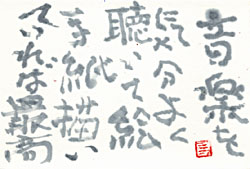 音楽を
気分よく
聴いて絵
手紙描い
ていれば最高